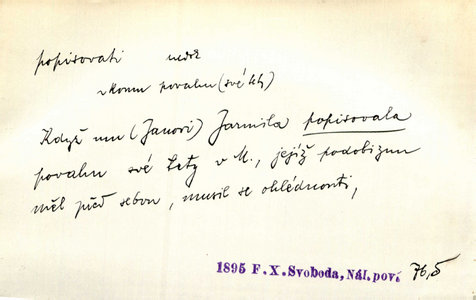 popisovati nedok
komu povahu (své tety)
Když mu (Janovi) Jarmila popisovala
povahu své tety v M., jejíž podobiznu
měl před sebou, musil se ohlédnouti,
1895 F. X. Svoboda, Nál. poví. 76,5